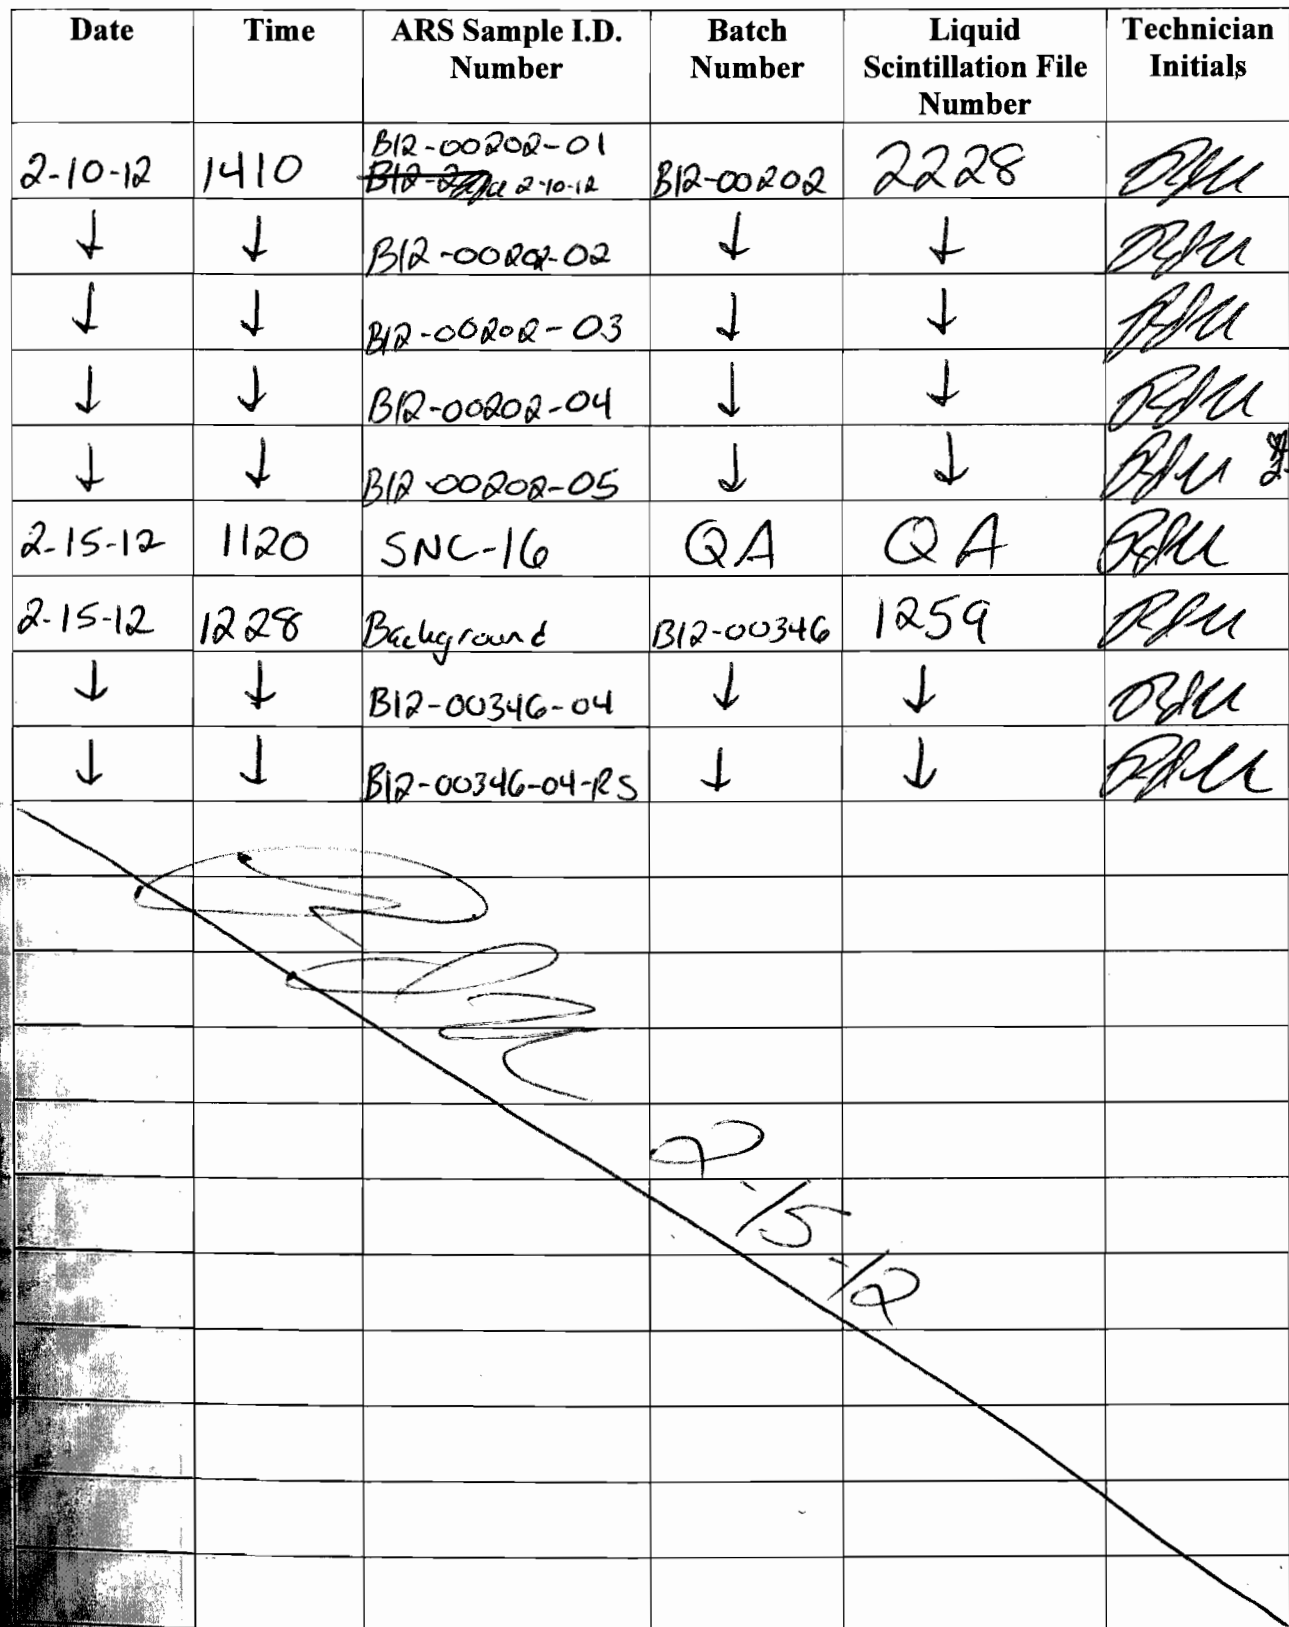 Date Time ARS Sample I.D. Number Batch Number Liquid Scintillation File Number Technician Initials
B12-00202-01
2-10-12 1410 2-10-12 B12-00202 2228
↓ ↓ B12-00202-02 ↓ ↓
↓ ↓ B12-00202-03 ↓ ↓
↓ ↓ B12-00202-04 ↓ ↓
↓ ↓ B12-00202-05 ↓ ↓
2-15-12 1120 SNC-16 QA QA
2-15-12 1228 Background B12-00346 1259
↓ ↓ B12-00346-04 ↓ ↓
↓ ↓ B12-00346-04-RS ↓ ↓
2-15-12